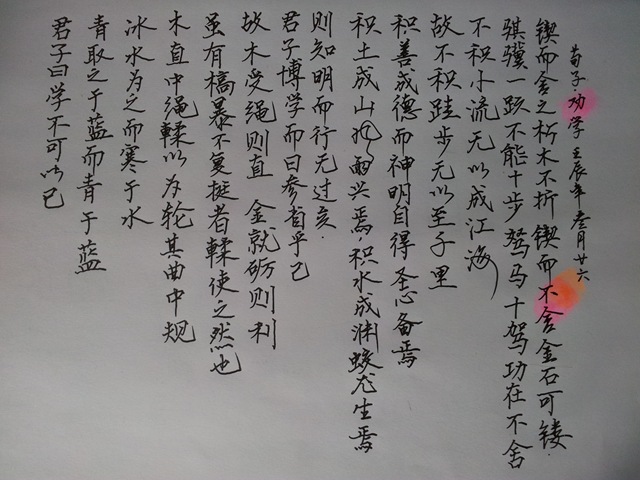 君子曰学不可以已
青取之于蓝而青于蓝
冰水为之而寒于水
木直中绳輮以为轮其曲中规
虽有槁暴不复挺者輮使之然也
故木受绳则直 金就砺则利
君子博学而日参省乎己
则知明而行无过矣.
积土成山风雨兴焉,积水成渊蛟龙生焉
积善成德而神明自得圣心备焉
故不积跬步无以至千里
不积小流无以成江海
骐骥一跃不能十步驽马十驾功在不舍
锲而舍之朽木不折锲而不舍金石可镂.
荀子·劝学 壬辰年叁月廿六